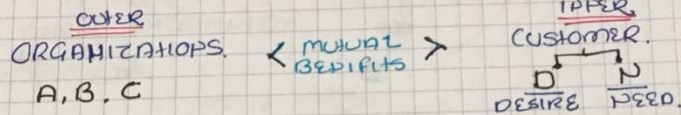 OUTER
ORGANIZATIONS.
A, B, C
< MUTUAL
BENIFITS >
INNER
CUSTOMER.
D N
DESIRE NEED.